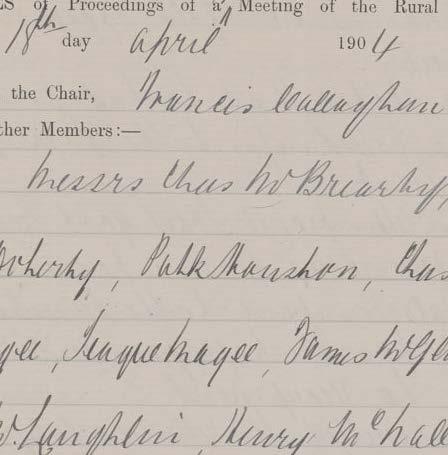 LS of Proceedings of a Meeting of the Rural
18th day April 1904
the Chair, Francis Callaghan
ther Members:—
Messrs Chas McBrearty,
Doherty, Patk Chas
gee, Teague Magee, James McGl
McLaughlin, Henry McCall